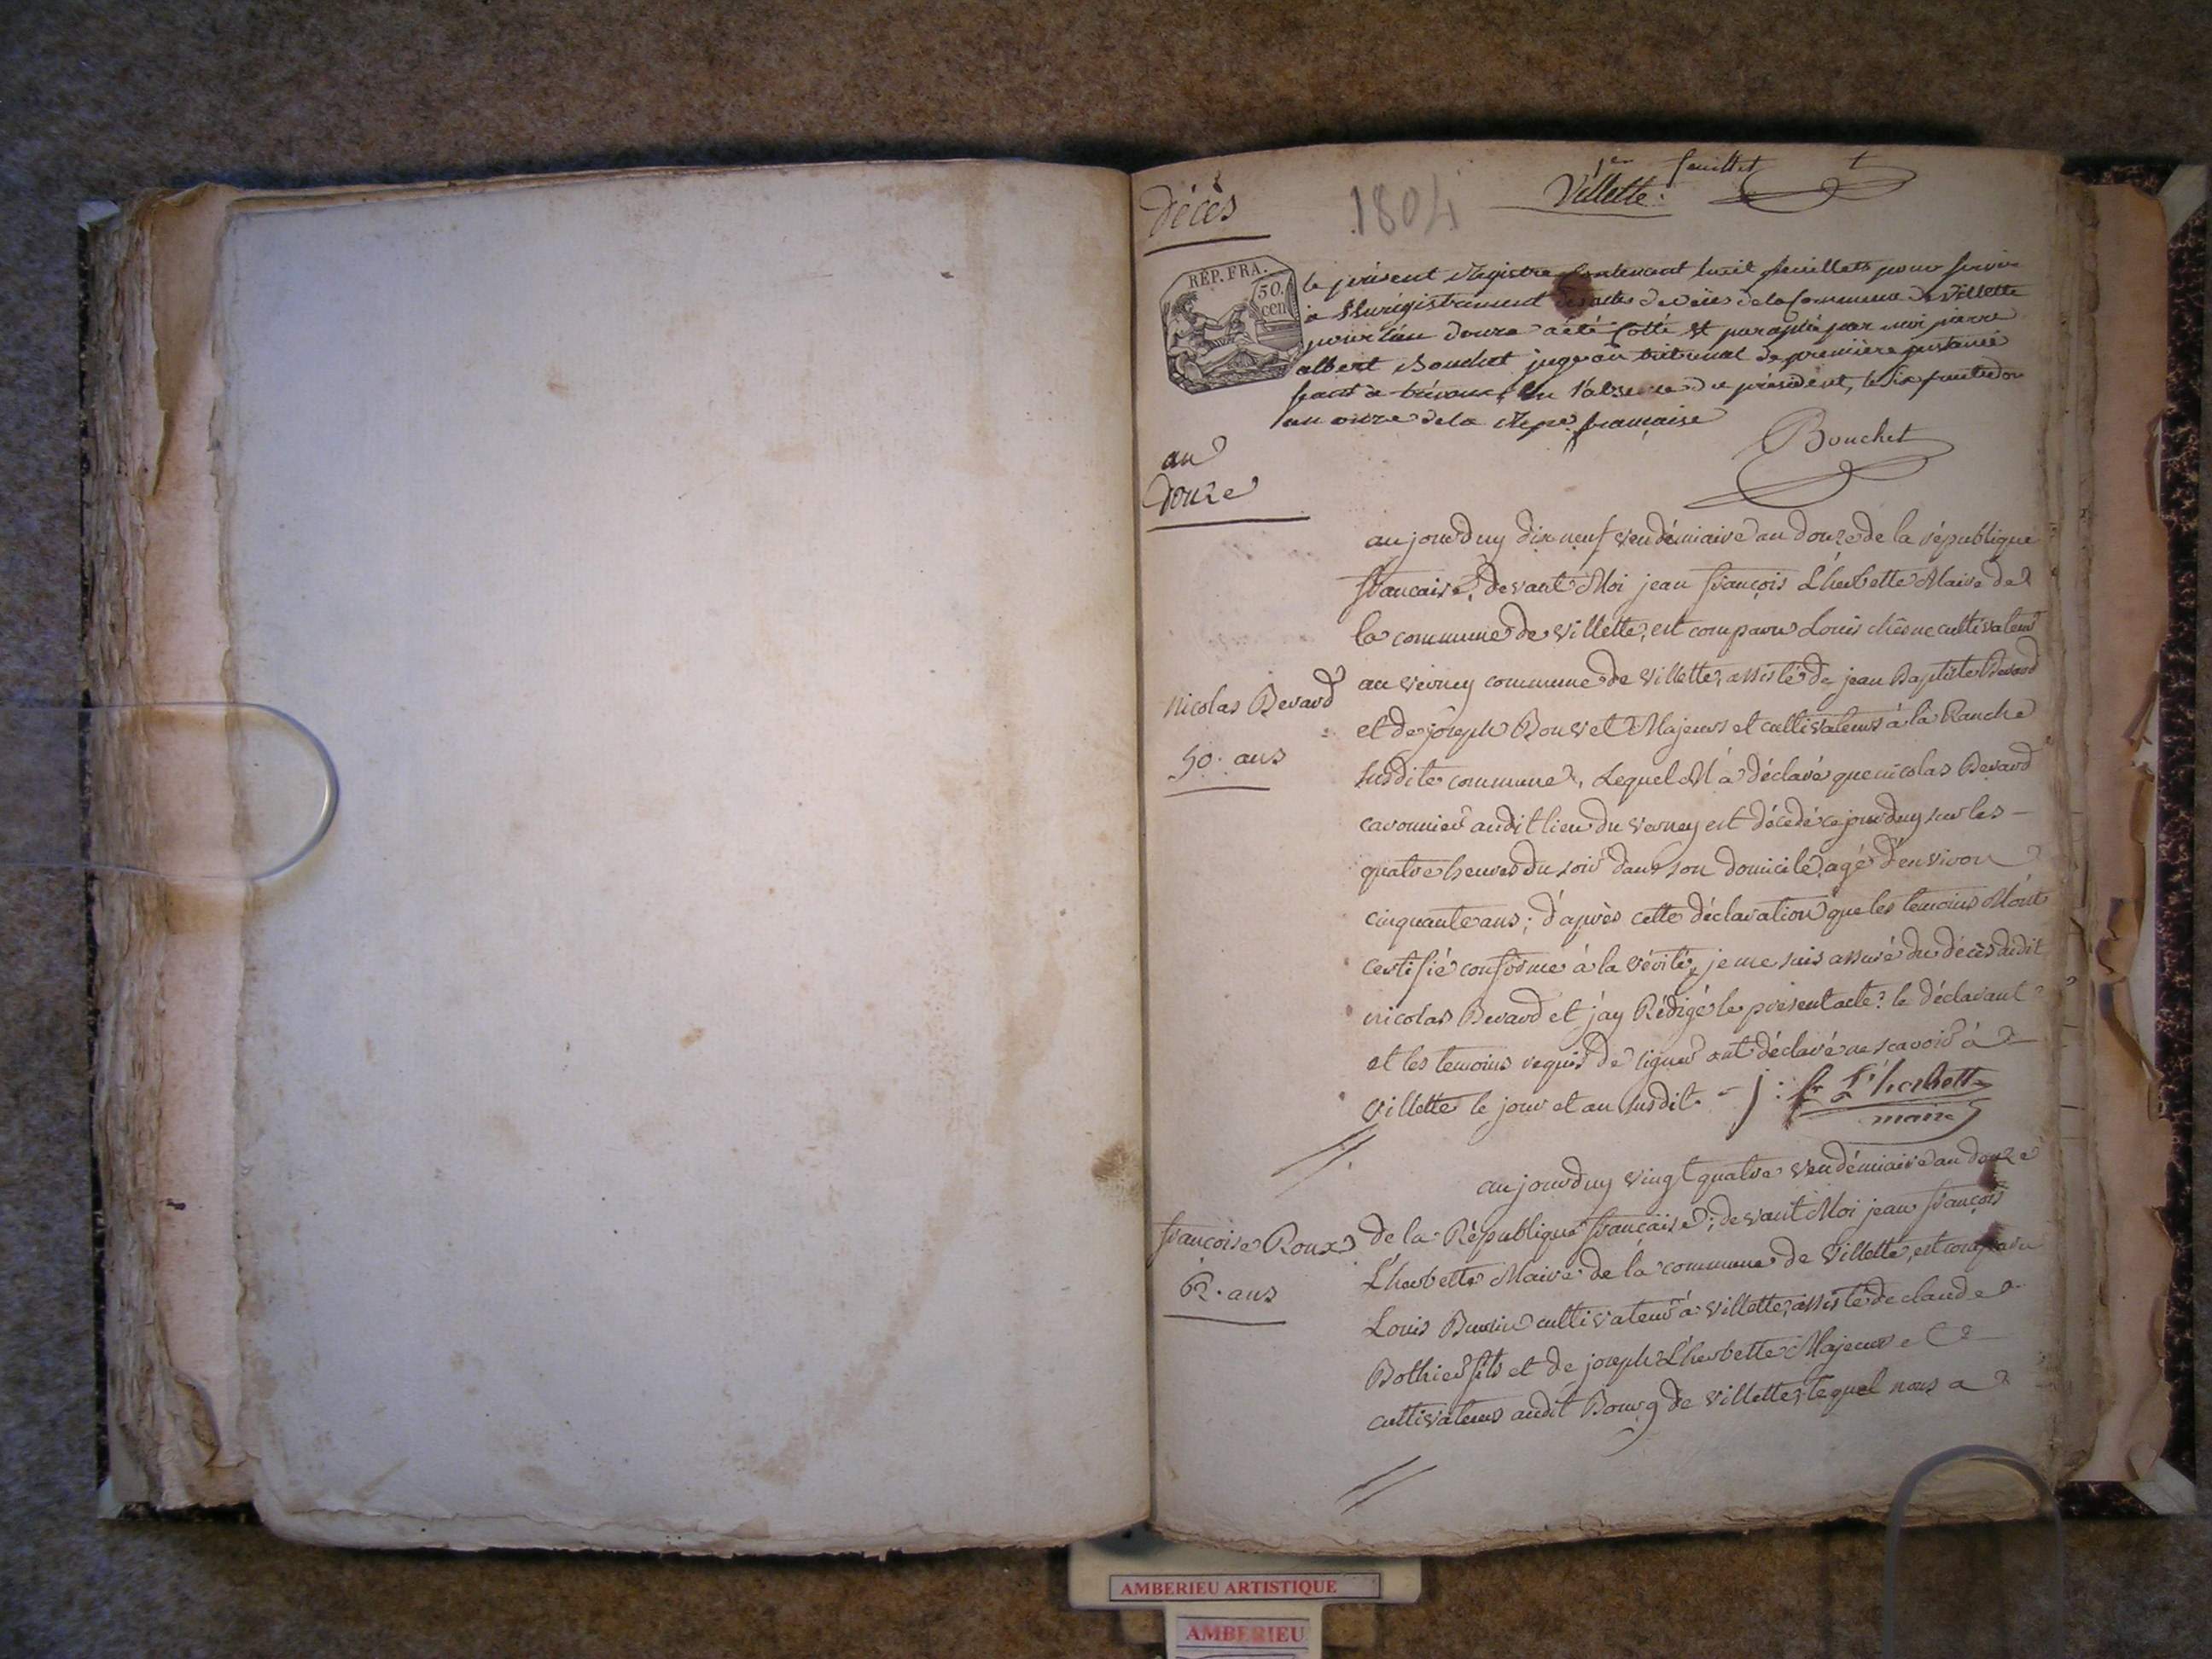 1er feuillet
Décès
1804
Villette.
RÉP. FRA.
50.
cen
le présent Registre contenant huit feuillets pour servir
à l'Enrégistrement des actes de décès de la Commune de Villette
pour l'an douze a été Cotté et paraphé par moi pierre
albert Bouchet juge au tribunal de première instance
séant à trévoux, en l'absence du président, le six fructidor
an onze de la Repe. française
Bouchet
an
douze
aujourduy dix neuf vendémiaire an douze de la république
francaise, devant Moi jean françois Lherbette Maire de
la commune de villette, est comparu Louis chêne cultivateur
au verney commune de villette, assisté de jean Baptiste Berard
et de joseph Bouvet Majeurs et cultivateurs à la Ranche
susdite commune, Lequel M'a déclaré que nicolas Berard
Nicolas Berard
50. ans
audit lieu du verney est décédé ce jourduy sur les
quatre heures du soir dans son domicile, agé d'environ
cinquante ans; d'après cette déclaration que les temoins M'ont
certifié conforme à la vérité, je me suis assuré du décès dudit
nicolas Berard et j'ay Rédigé le présent acte. le déclarant
et les temoins requis de signer ont déclaré ne scavoir à
villette le jour et an susdit. j: fr L'herbette
maire
aujourduy vingt quatre vendémiaire an douze
de la République francaise; devant Moi jean françois
francoise Roux
62. ans
Lherbette Maire de la commune de villette, est comparu
Louis cultivateur à villette, assisté de claude
Bothier fils et de joseph Lherbette Majeurs et
cultivateurs audit Bourg de villette, lequel nous a
AMBERIEU ARTISTIQUE
AMBERIEU